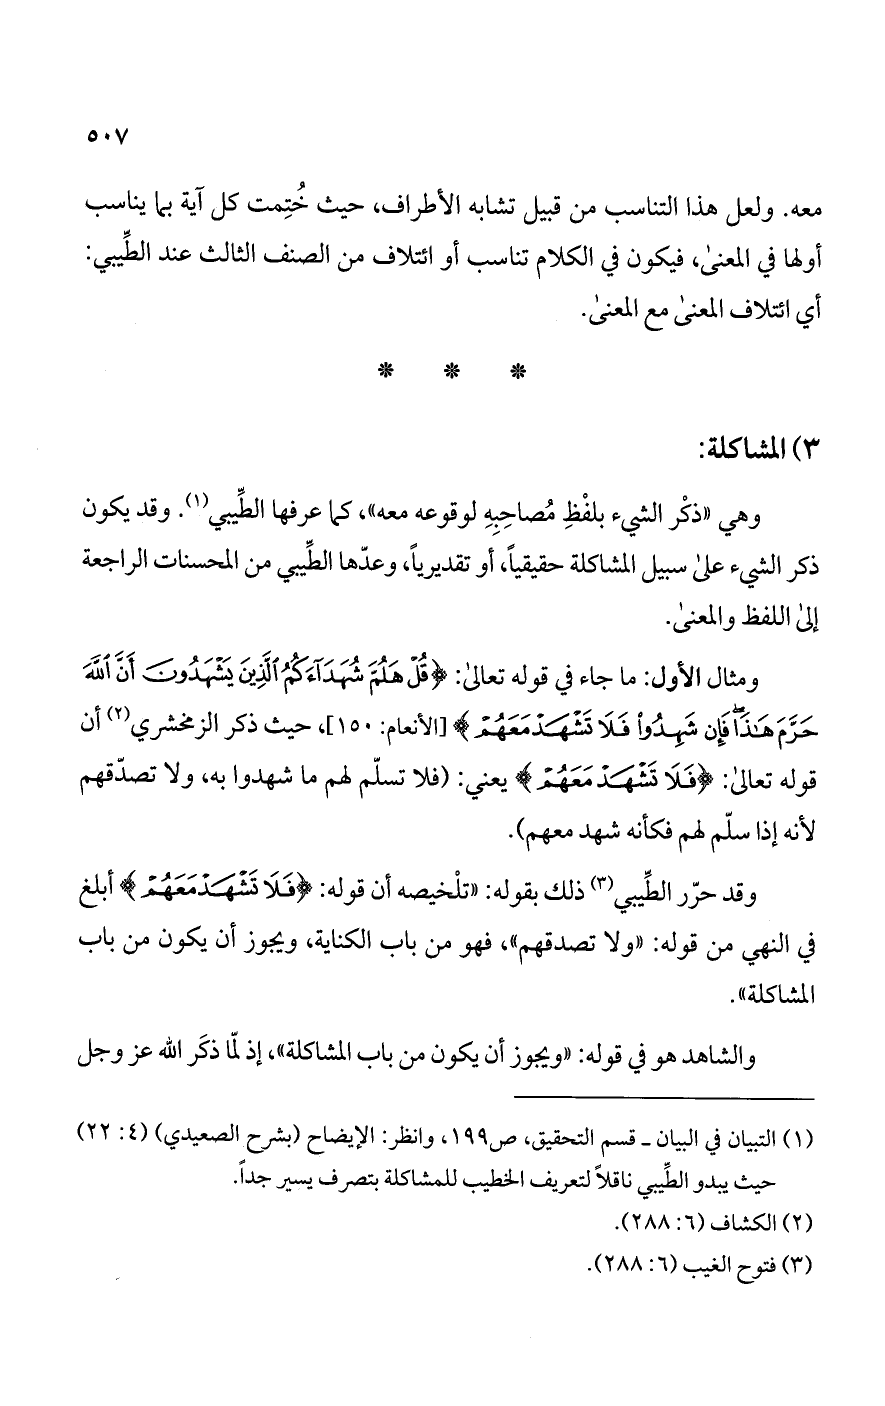 ٥٠٧
معه. ولعل هذا التناسب من قبيل تشابه الأطراف، حيث خُتِمت كل آية بما يناسب
أولها في المعنىٰ، فيكون في الكلام تناسب أو ائتلاف من الصنف الثالث عند الطِّيبي:
أي ائتلاف المعنىٰ مع المعنىٰ.
* * *
٣) المشاكلة:
وهي «ذكْر الشيء بلفْظِ مُصاحِبِهِ لوقوعه معه»، كما عرفها الطِّيبي(١). وقد يكون
ذكر الشيء علىٰ سبيل المشاكلة حقيقياً، أو تقديرياً، وعدّها الطِّيبي من المحسنات الراجعة
إلىٰ اللفظ والمعنىٰ.
ومثال الأول: ما جاء في قوله تعالىٰ: ﴿قُلْ هَلُمَّ شُهَدَآءَكُمُ ٱلَّذِينَ يَشْهَدُونَ أَنَّ ٱللَّهَ
حَرَّمَ هَـٰذَاۖ فَإِن شَهِدُواْ فَلَا تَشْهَدْ مَعَهُمْ﴾ [الأنعام: ١٥٠]، حيث ذكر الزمخشري(٢) أن
قوله تعالىٰ: ﴿فَلَا تَشْهَدْ مَعَهُمْ﴾ يعني: (فلا تسلّم لهم ما شهدوا به، ولا تصدّقهم
لأنه إذا سلّم لهم فكأنه شهد معهم).
وقد حرّر الطِّيبي(٣) ذلك بقوله: «تلْخيصه أن قوله: ﴿فَلَا تَشْهَدْ مَعَهُمْ﴾ أبلغ
في النهي من قوله: «ولا تصدقهم»، فهو من باب الكناية، ويجوز أن يكون من باب
المشاكلة».
والشاهد هو في قوله: «ويجوز أن يكون من باب المشاكلة»، إذ لمّا ذكَر الله عز وجل
(١) التبيان في البيان ـ قسم التحقيق، ص١٩٩، وانظر: الإيضاح (بشرح الصعيدي) (٤: ٢٢)
حيث يبدو الطِّيبي ناقلاً لتعريف الخطيب للمشاكلة بتصرف يسير جداً.
(٢) الكشاف (٦: ٢٨٨).
(٣) فتوح الغيب (٦: ٢٨٨).